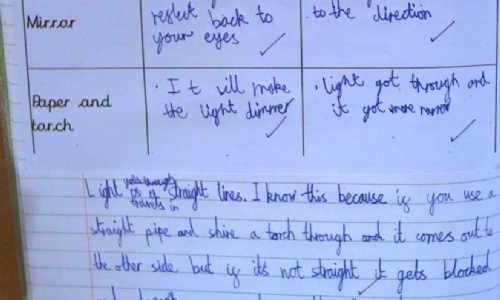 reflect back to
your eyes
to the direction
Mirror
Paper and
torch
• It will make
the light dimmer
• light got through and
it got more
Light travels in straight lines. I know this because if you use a
straight pipe and shine a torch through and it comes out
the other side but if it's not straight it gets blocked